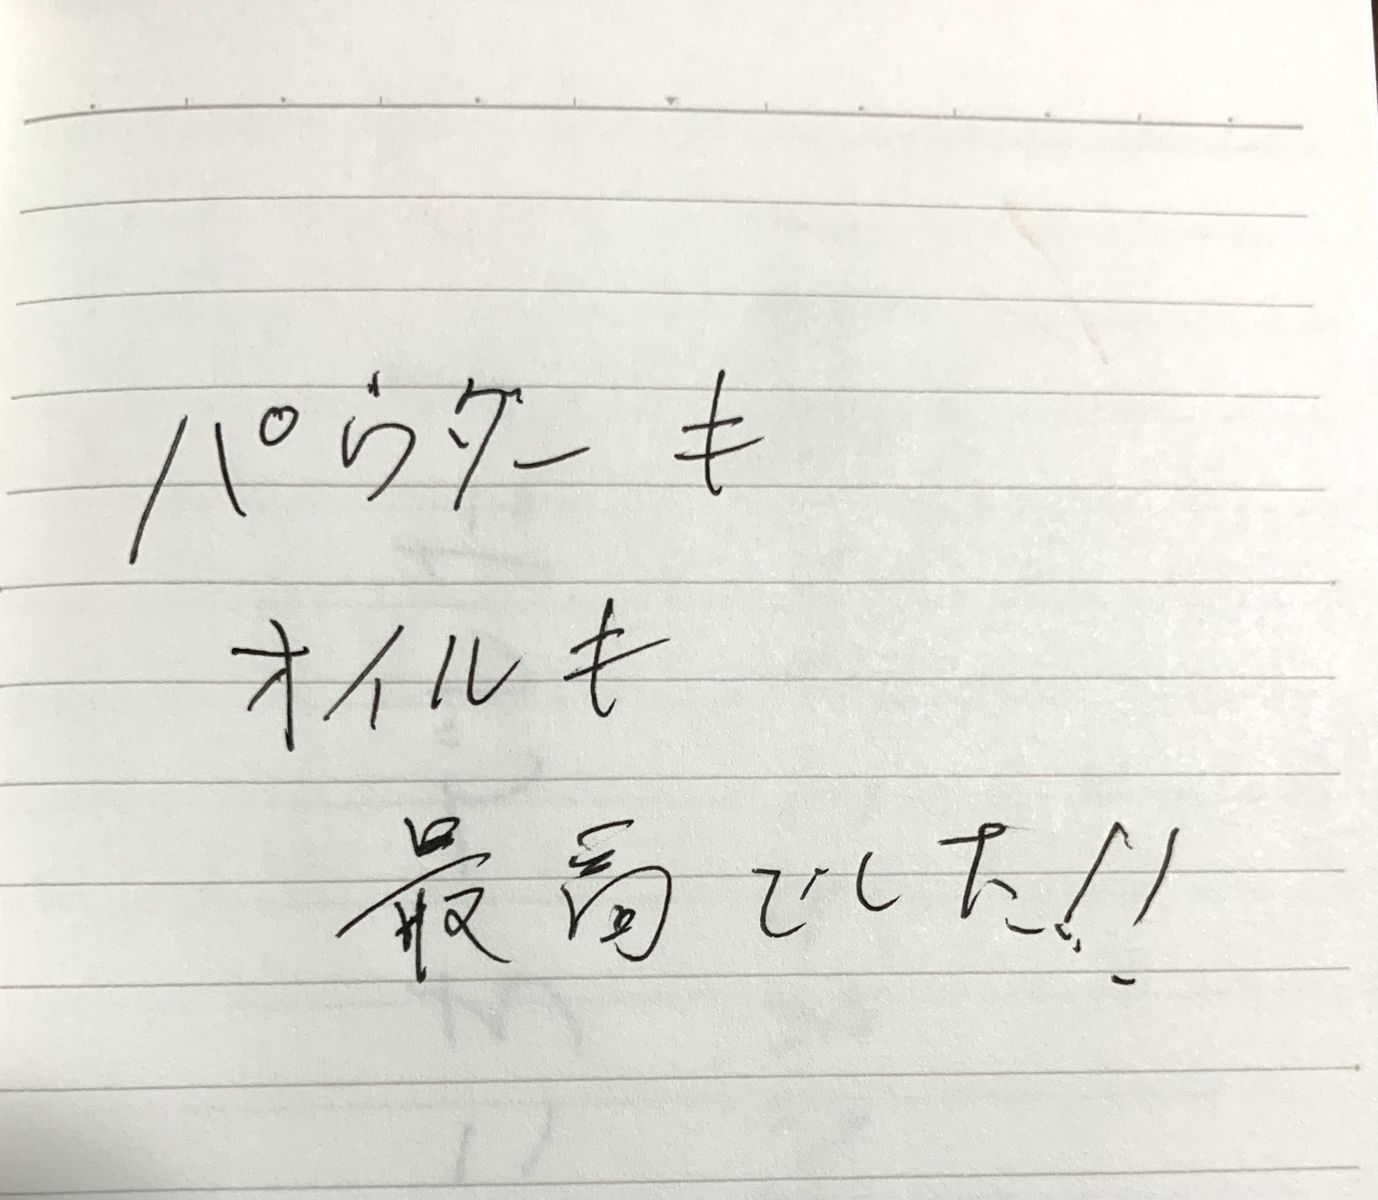 パウダーも
オイルも
最高でした!!